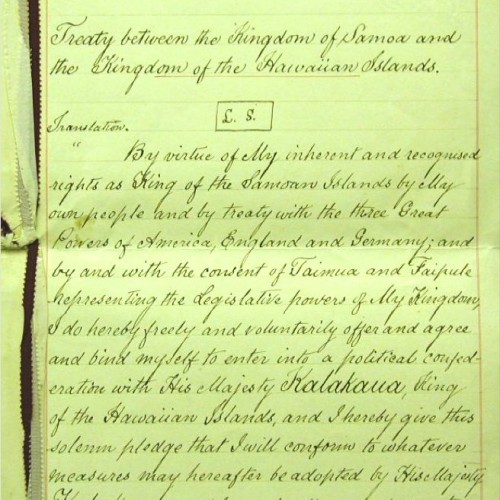 Treaty between the Kingdom of Samoa and
the Kingdom of the Hawaiian Islands.
L. S.
Translation.
" By virtue of My inherent and recognised
rights as King of the Samoan Islands by My
own people and by treaty with the three Great
Powers of America, England and Germany; and
by and with the consent of Taimua and Faipule
representing the Legislative powers of My Kingdom,
I do hereby freely and voluntarily offer and agree
and bind myself to enter into a political confed-
eration with His Majesty Kalakaua, King
of the Hawaiian Islands, and I hereby give this
solemn pledge that I will conform to whatever
measures may hereafter be adopted by His Majesty